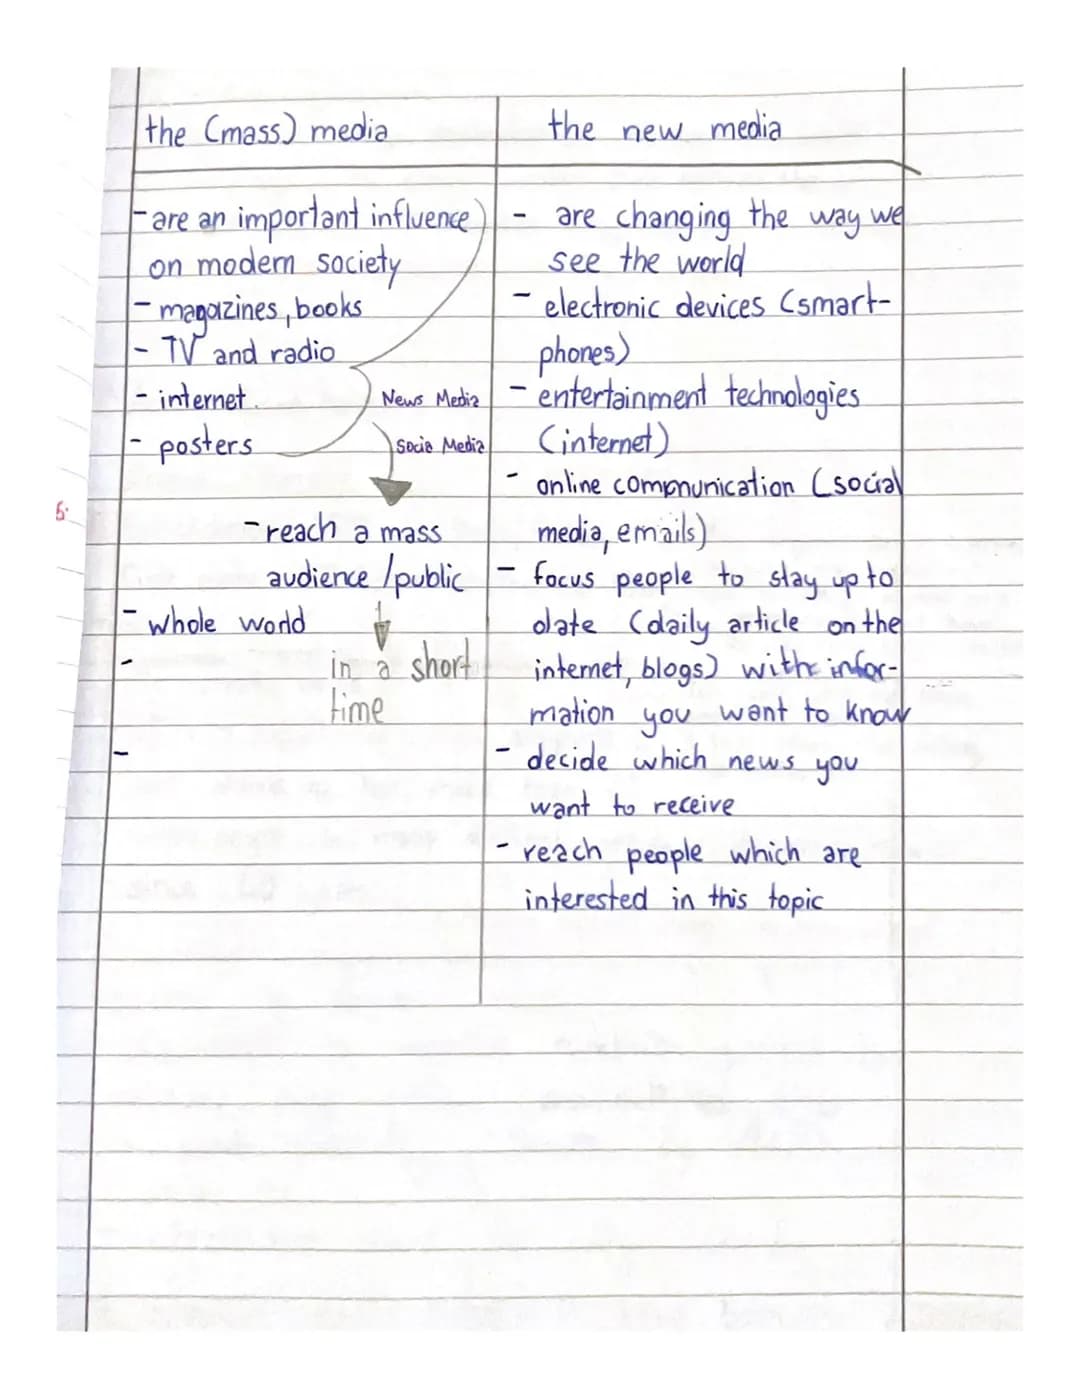 the (mass) media
- are an important influence
on modern society
- magazines, books
- TV and radio
- internet
- posters
News Media
Socia Media
- reach a mass
audience / public
- whole world
in a short
time
-
-
the new media
- are changing the way we
see the world
- electronic devices (smart-
phones)
- entertainment technologies
(internet)
- online communication (social
media, emails)
- focus people to stay up to
date (daily article on the
internet, blogs) with infor-
mation you want to know
- decide which news you
want to receive
- reach people which are
interested in this topic